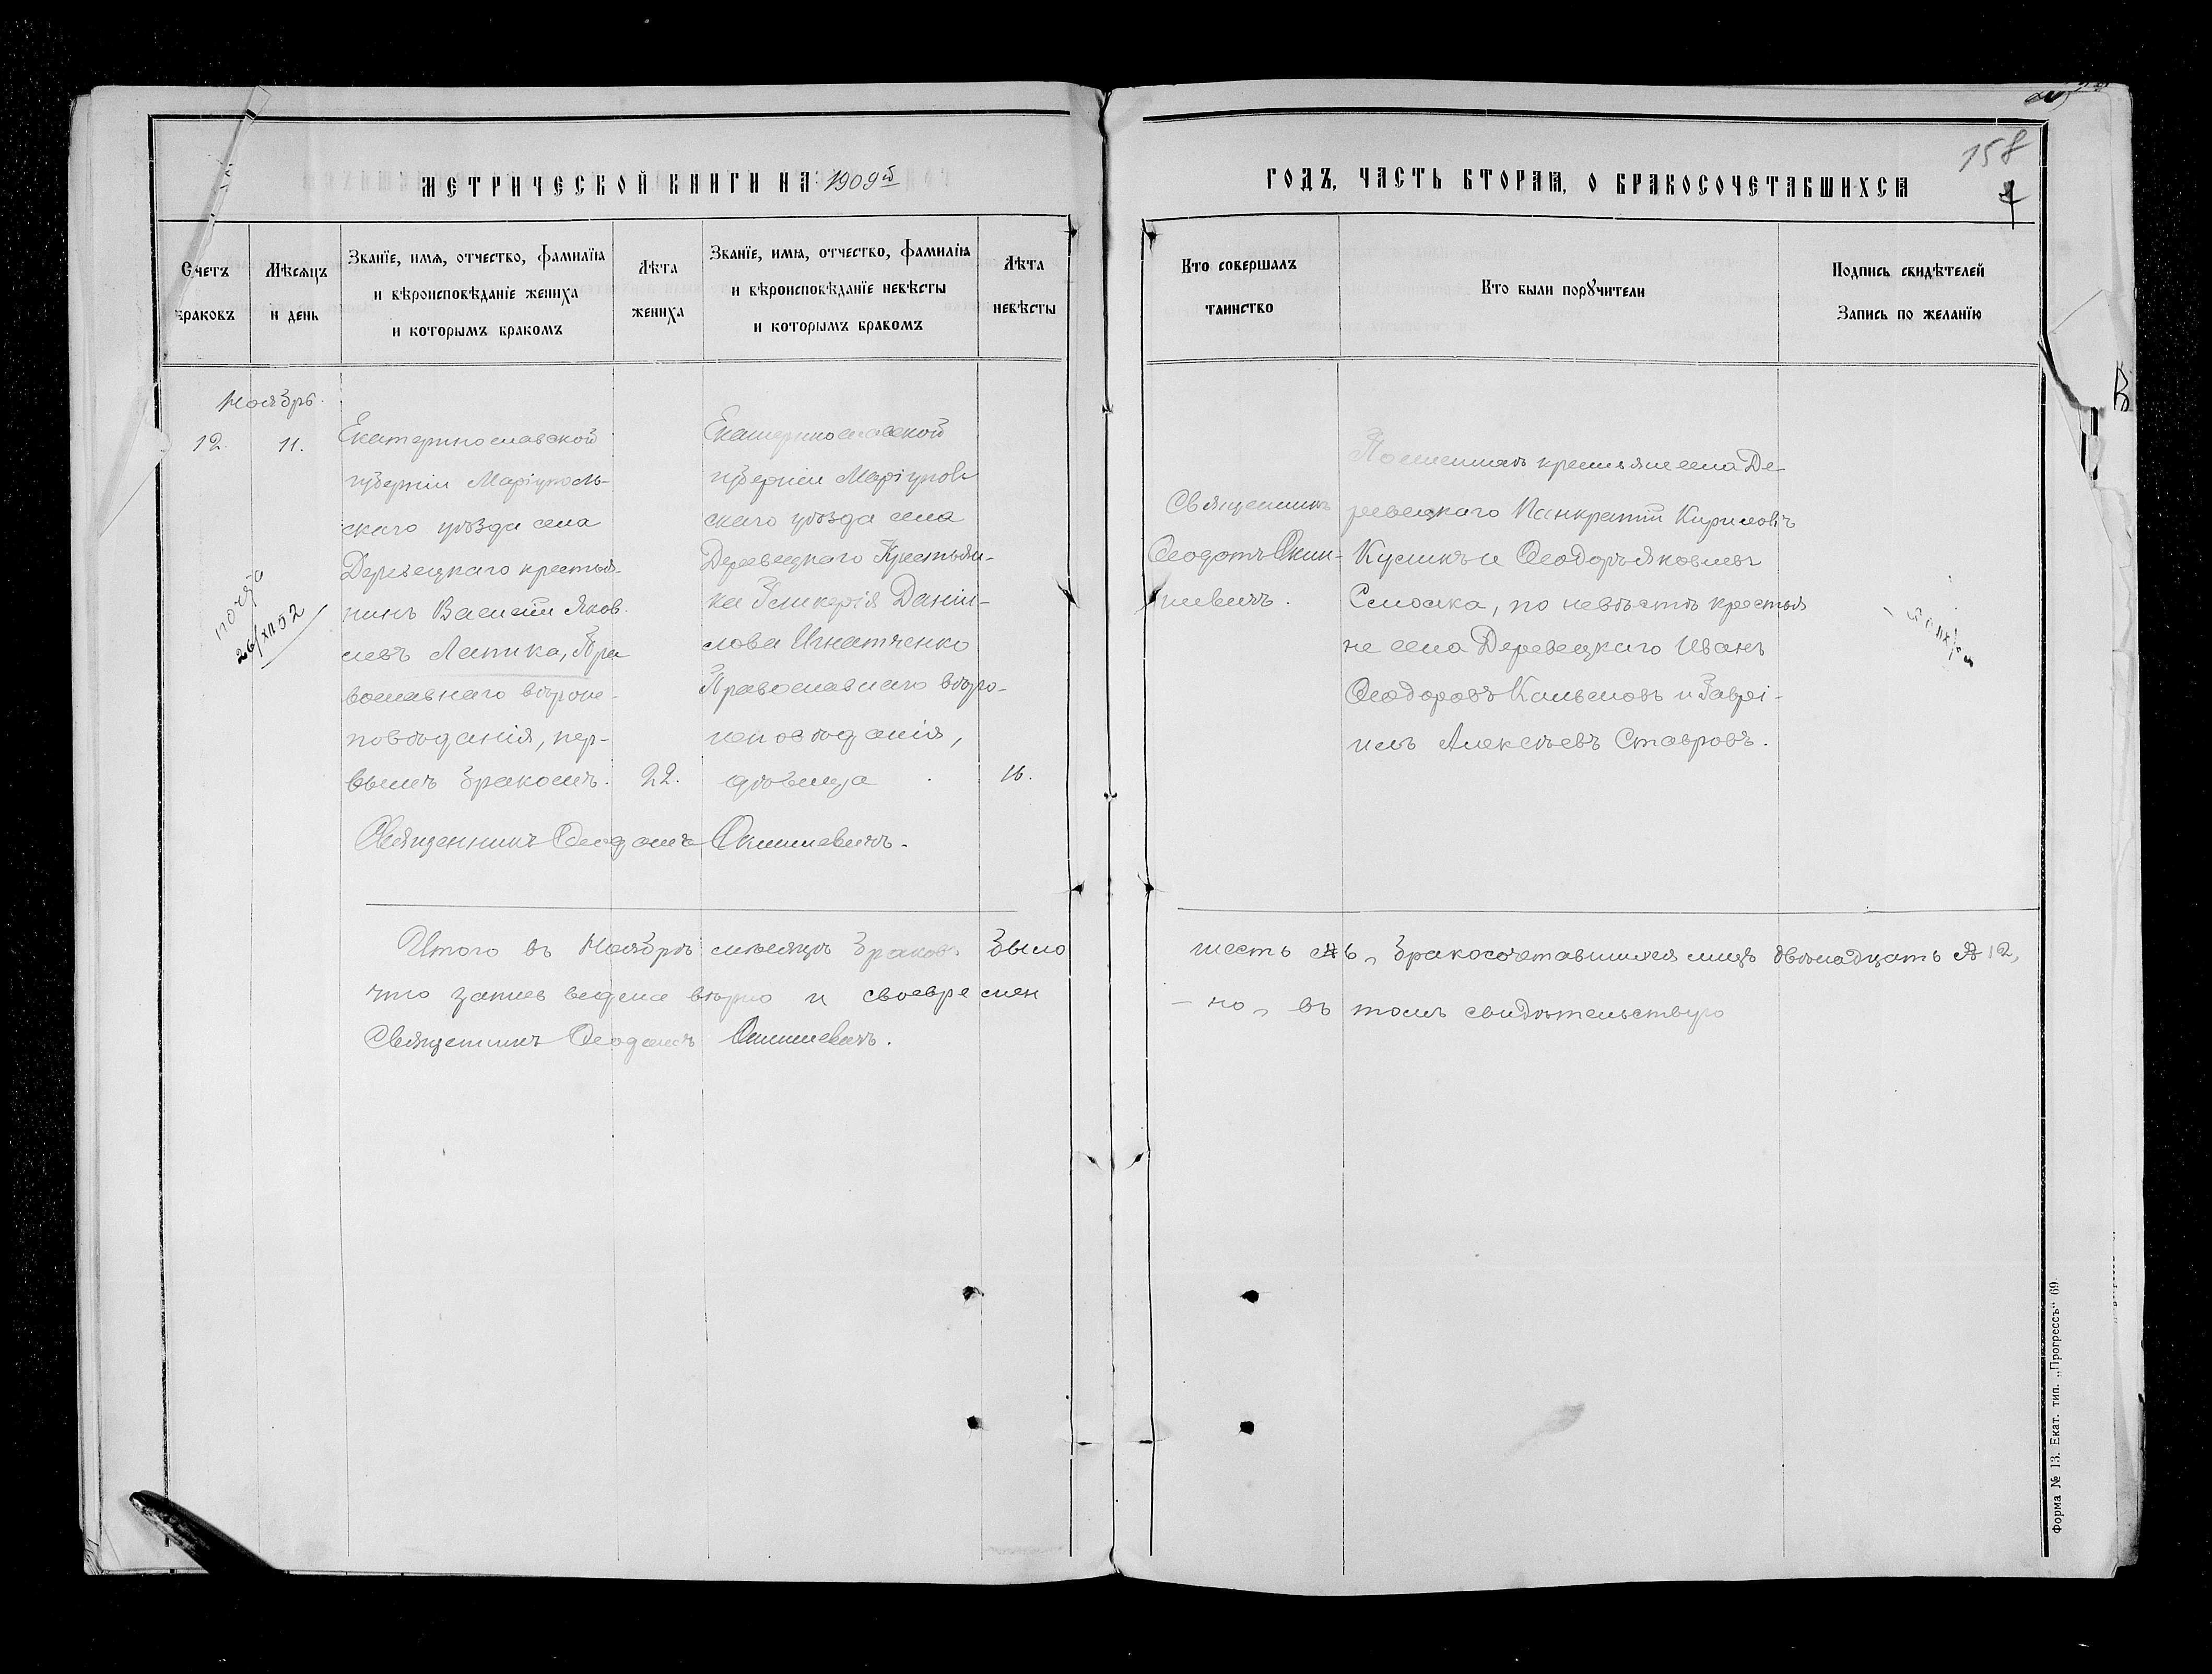 МЕТРИЧЕСКОЙ КНИГИ НА 1909й
ГОДЪ, ЧАСТЬ ВТОРАЯ, О БРАКОСОЧЕТАВШИХСЯ
158
Счетъ браковъ
Мѣсяцъ и день
Званїе, имя, отчество, фамилїя
и вѣроисповѣданїе жениха
и которымъ бракомъ
Лѣта жениха
Званїе, имя, отчество, фамилїя
и вѣроисповѣданїе невѣсты
и которымъ бракомъ
Лѣта невѣсты
Кто совершалъ
таинство
Кто были поручители
Подпись свидѣтелей
Запись по желанїю
Ноябрь.
12.
11.
Екатеринославской
губерніи Маріуполь-
скаго уѣзда села
Деревецкаго крестья-
нинъ Василій Яков-
левъ Лапика, Пра
вославнаго вѣроис-
повѣданія, пер-
вымъ бракомъ.
22.
Екатеринославской
губерніи Маріуполь
скаго уѣзда села
Деревецкаго Крестьян-
ка Гликерія Даніи-
лова Игнатченко
Православнаго вѣро-
исповѣданія,
дѣвица
16.
Священникъ Ѳеодотъ Окиншевичъ.
26/XII 52
Священникъ
Ѳеодотъ Окин-
шевичъ.
По женихѣ крестьяне села Де-
ревецкаго Панкратій Кириловъ
Куликъ и Ѳеодоръ Яковлевъ
, по невѣстѣ крестья
не села Деревецкаго Иванъ
Ѳеодоровъ и Гаврі-
илъ Алексѣевъ Ставровъ.
Итого въ Ноябрѣ мѣсяцѣ браковъ было шесть 6, бракосочетавшихся лицъ двѣнадцать 12,
что запись ведена вѣрно и своевремен - но, въ томъ свидѣтельствую
Священникъ Ѳеодотъ Окиншевичъ.
Форма № 13. Екат. тип. „Прогрессъ“ 69